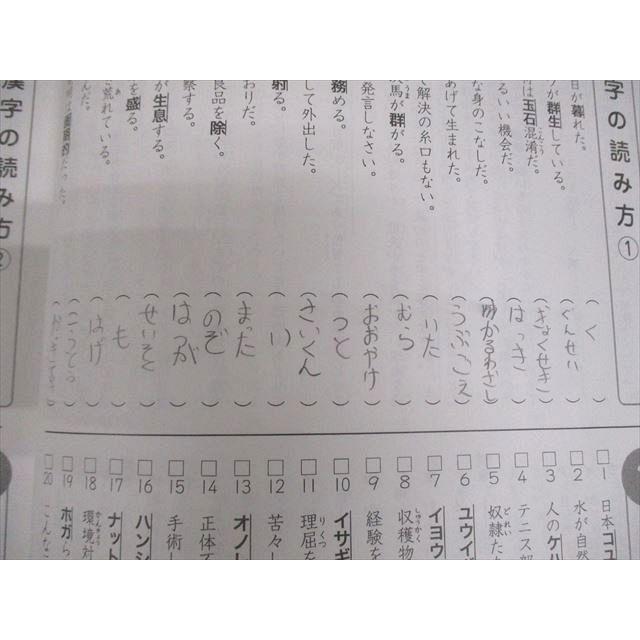 字の読み方①
日が暮れた。
が群生している。
は玉石混淆だ。
るいい機会だ。
な身のこなしだ。
あげて生まれた。
て解決の糸口もない。
馬が群がる。
発言しなさい。
務める。
して外出した。
射る。
おりだ。
良品を除く。
察する。
が生息する。
を盛る。
荒れている。
漢字の読み方②
( く )
( ぐんせい )
( ぎょくせき )
( はっき )
( うぶごえ )
( いた )
( むら )
( おおやけ )
( つと )
( さいくん )
( い )
( まった )
( のぞ )
( はつが )
( せいそく )
( も )
( はげ )
( こうてつ )
□1 日本コユ
□2 水が自然
□3 人のケハ
□4 テニス部
□5 奴隷た
□6 ユウイ
□7 イヨウ
□8 収穫物
□9 経験を
□10 イサギ
□11 理屈を
□12 苦々し
□13 オノレ
□14 正体不
□15 手術し
□16 ハンシ
□17 ナット
□18 環境対
□19 ホガら
□20 こんなこ